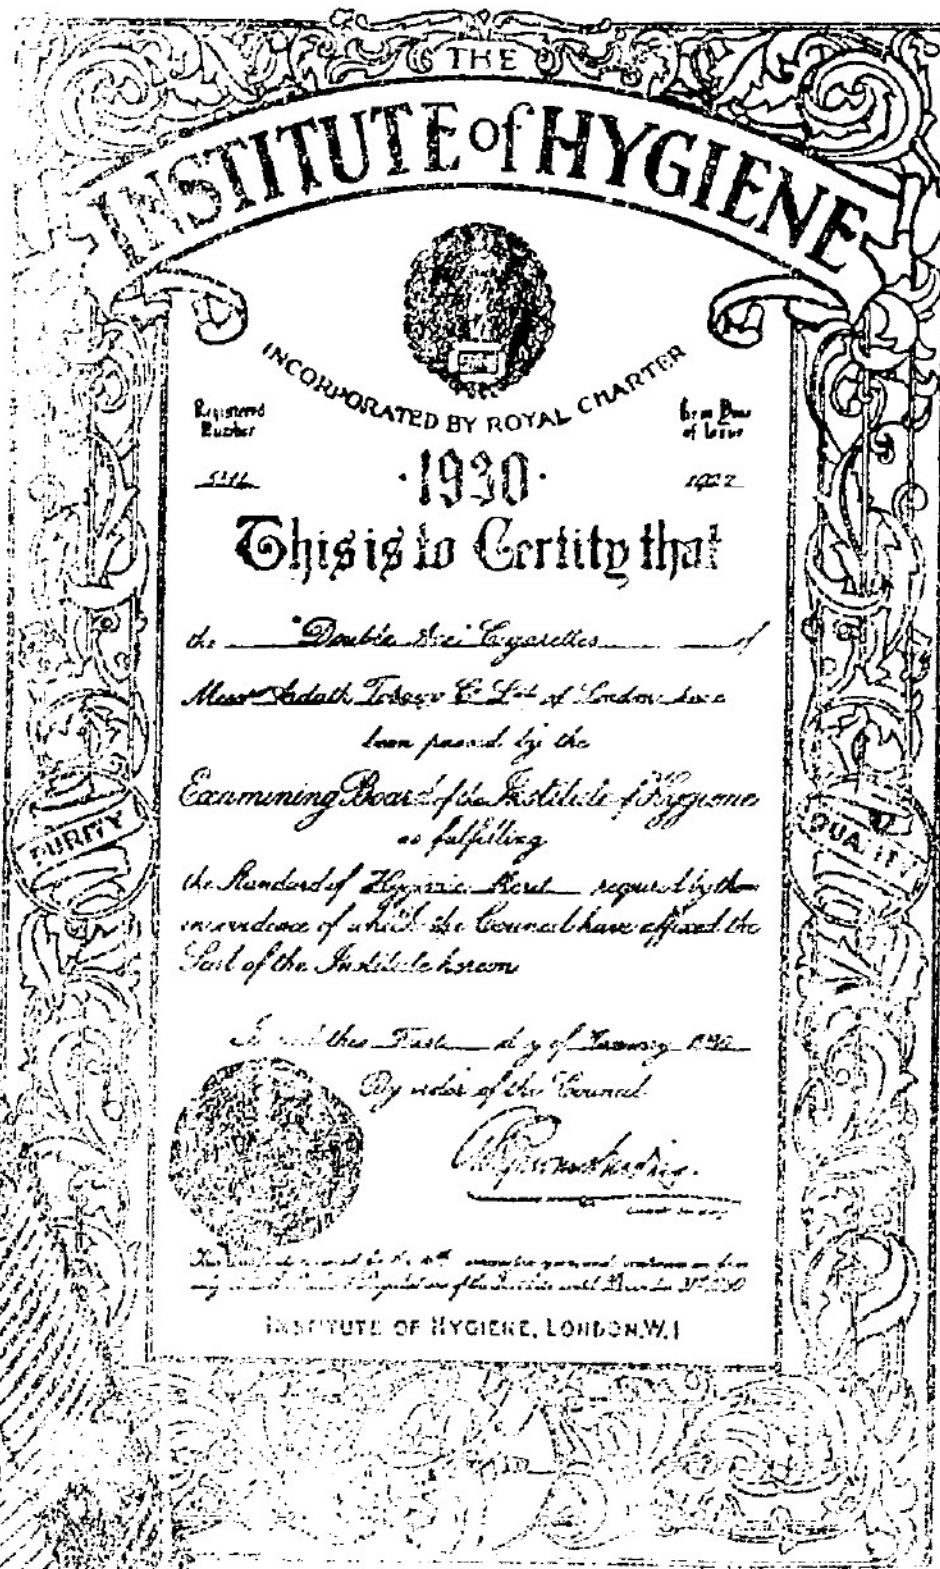 THE
INSTITUTE of HYGIENE
INCORPORATED BY ROYAL CHARTER
Registered
Number
of Issue
1922
·1930·
This is to Certify that
the "Double Ace" Cigarettes of
Messrs Ardath Tobacco Co Ltd of London have
been passed by the
Examining Board of the Institute of Hygiene
as fulfilling
the Standard of Hygienic Merit required by them
in evidence of which the Council have affixed the
Seal of the Institute hereon
PURITY
QUALITY
this First day of January 1930
By order of the Council
of the Institute until December 31st 1930
INSTITUTE OF HYGIENE, LONDON.W.1